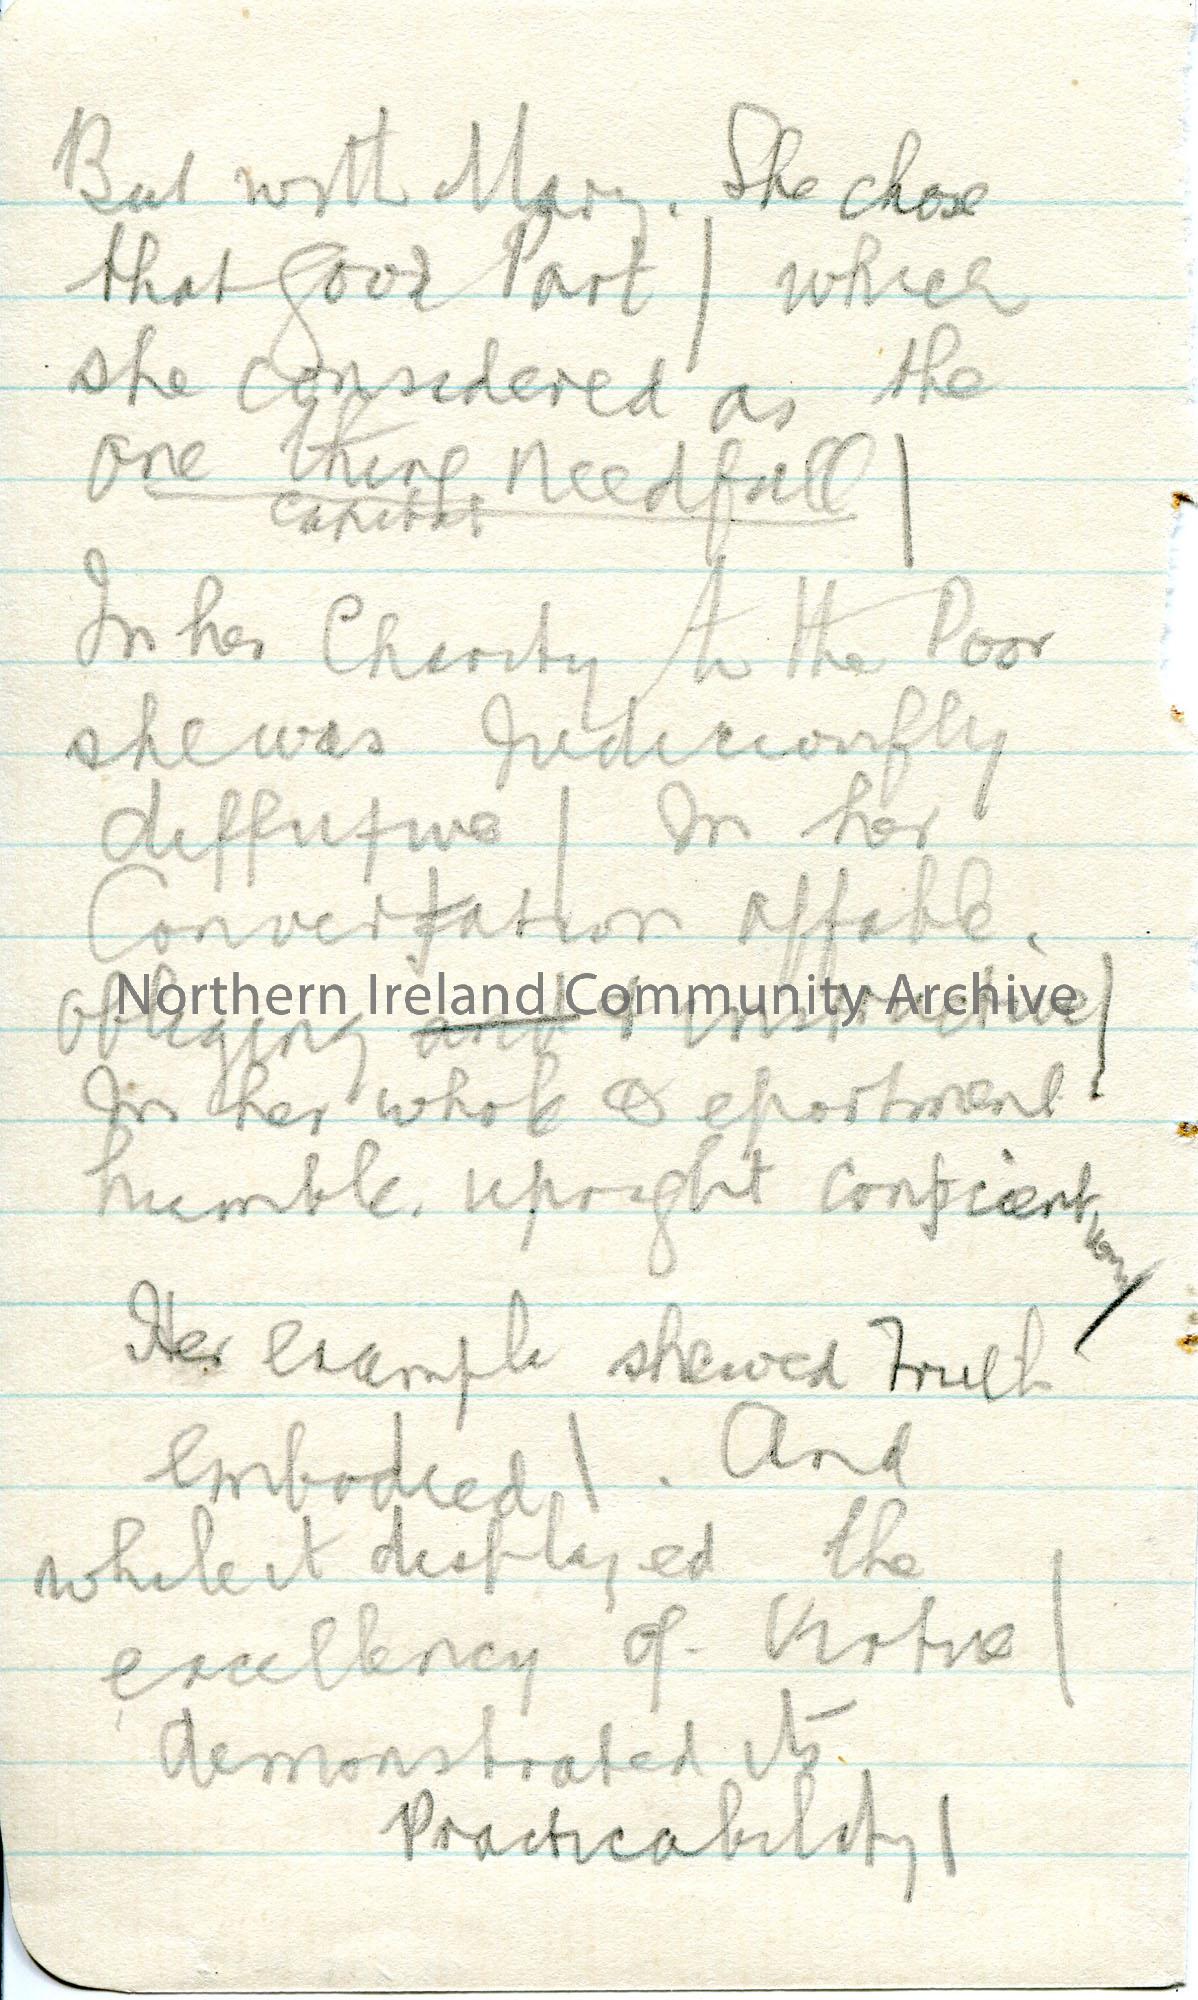 But with Mary. She chose
that good Part | which
she considered as the
one thing needfull |
capitals
In her Charity to the Poor
she was Judiciousſly
diffuſive | In her
Converſation affable,
obliging and & instructive |
In her whole Deportment
humble, upright conſcient
Her example shewed Truth
embodied | . And
while it displayed the
excellency of Virtue |
demonstrated its
Practicability |
Northern Ireland Community Archive